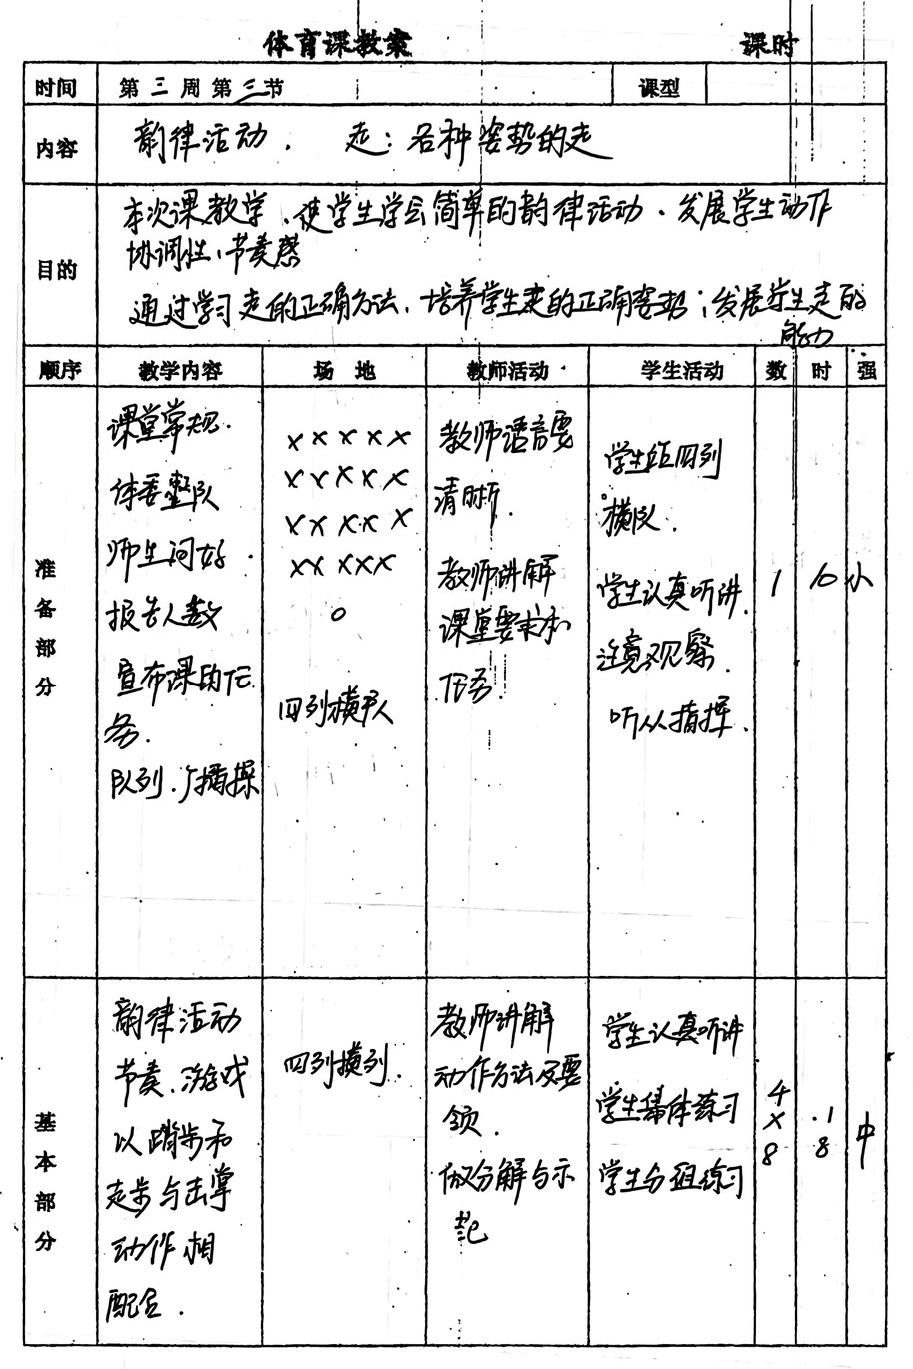 体育课教案 课时
时间 第三周第三节 课型
内容 韵律活动. 走：各种姿势的走
目的
本次课教学、使学生学会简单的韵律活动.发展学生动作
协调性、节奏感
通过学习走的正确方法、培养学生走的正确姿势；发展学生走的
能力
顺序 教学内容 场地 教师活动 学生活动 数 时 强
准备部分
课堂常规.
体委整队
师生问好.
报告人数
宣布课的任
务.
队列.广播操
×××××
×××××
×××××
×××××
○
四列横队
教师语言要
清晰.
教师讲解
课堂要求和
任务.
学生站四列
横队.
学生认真听讲.
注意观察.
听从指挥.
1
10
小
基本部分
韵律活动
节奏.游戏
以踏步和
走步与击掌
动作相
配合.
四列横列.
教师讲解
动作方法及要
领.
做分解与示
范
学生认真听讲
学生集体练习
学生分组练习
4×8
18
中